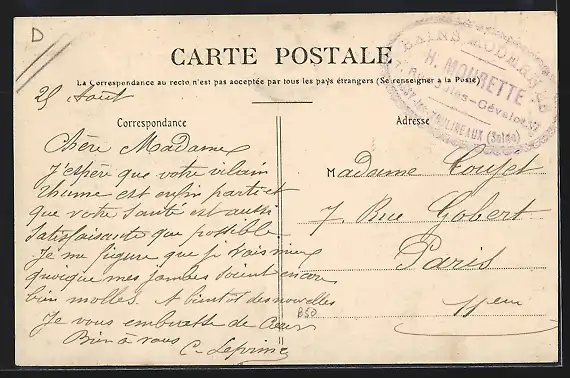 D
CARTE POSTALE
La Correspondance au recto n'est pas acceptée par tous les pays étrangers (Se renseigner à la Poste)
BAINS MODERNES
H. MOURETTE
7, Rue Jules-Gévelot, 7
ISSY-les-MOULINEAUX (Seine)
25 Août
Correspondance
Adresse
Chère Madame
J'espère que votre vilain
rhume est enfin parti et
que votre santé est aussi
satisfaisante que possible
Je me figure que je vais mieux
quoique mes jambes soient encore
bien molles. A bientôt des nouvelles
Je vous embrasse de cœur
Bien à vous
C. Leprince
Madame Toufet
7. Rue Gobert
Paris
11eme
B50